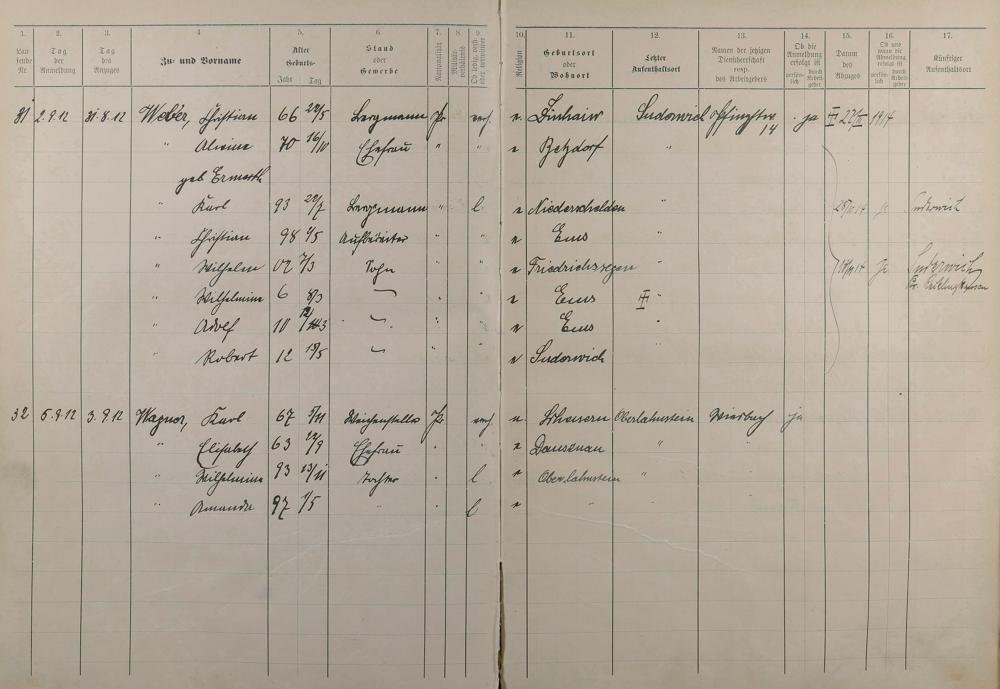 1. 2. 3. 4 5. 6. 7. 8. 9. 10. 11. 12. 13. 14. 15. 16. 17.
Lau-
fende
Nr.
Tag
der
Anmeldung
Tag
des
Anzuges
Zu- und Vorname
Alter
Geburts-
Jahr Tag
Stand
oder
Gewerbe
Nationalität
Militär-
verhältnis
Ob ledig, verh.
oder verwitwet
Religion
Geburtsort
oder
Wohnort
Letzter
Aufenthaltsort
Namen der jetzigen
Dienstherrschaft
resp.
des Arbeitgebers
Ob die
Anmeldung
erfolgt ist
persön-
lich
durch
Arbeit-
geber
Datum
des
Abzuges
Ob und
wann die
Abmeldung
erfolgt ist
persön-
lich
durch
Arbeit-
geber
Künftiger
Aufenthaltsort
31 2.9.12 31.8.12 Weber, Christian 66 22/5 Bergmann Pr verh. e. Suderwich 14 ja III 1914
" Alwine 70 16/11 Ehefrau " " e Betzdorf "
geb. Ermerth
" Karl 93 22/7 Bergmann " l e Niederschelden " Suderwich
" Christian 98 1/5 Aufbereiter " " e Ems "
" Wilhelm 02 7/3 Sohn " " e Friedrichssegen " Suderwich
" Wilhelmine 6 8/3 " " e Ems III "
Kr. Recklinghausen
" Adolf 10 " " e Ems
" Robert 12 13/5 " " e Suderwich "
32 5.9.12 3.9.12 Wagner, Karl 67 5/11 Weichensteller Pr verh. e. Oberlahnstein ja
" Elisabeth 63 12/9 Ehefrau " " e Dausenau " "
" Wilhelmine 93 13/11 Tochter " l e Oberlahnstein "
" Amanda 97 1/5 " " l e " "